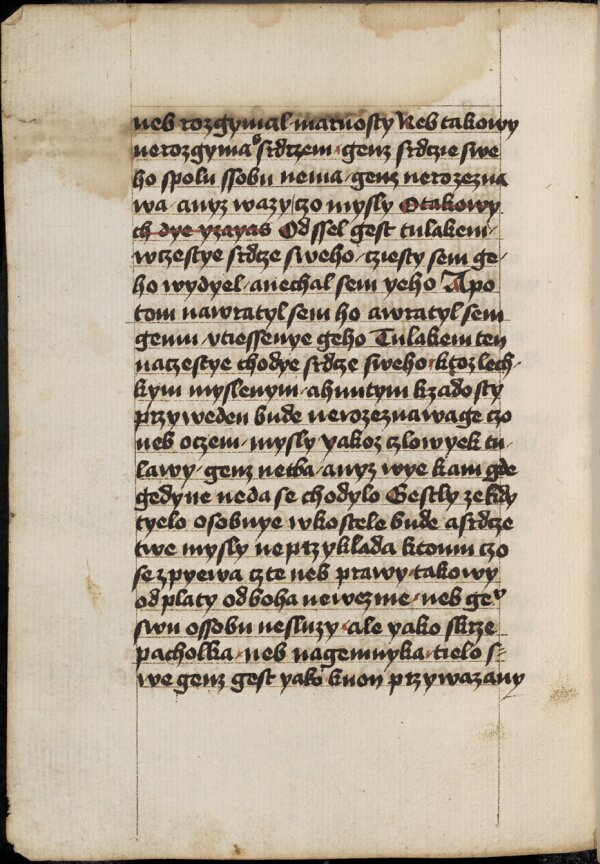 neb rozgymal marnosty Neb takowy
nerozgyma srdczem genz srdcze swe
ho spolu ssobu nema genz nerozezna
wa anyz wazy czo mysly Otakowy
ch dye yzayas Odssel gest tulakem
wczestye srdcze sweho cziesty sem ge
ho wydyel anechal sem yeho Apo
tom nawratyl sem ho awratyl sem
gemu vtiessenye geho Tulakem ten
naczestye chodye srdcze sweho ktoz lech
kym myslenym ahnutym kzadosty
przyweden bude nerozeznawage czo
neb oczem mysly yakoz czlowyek tu
lawy genz netba anyz wye kam gde
gedyne neda se chodylo Gestly ze kdy
tyelo osobnye wkostele bude asrdcze
twe mysly neprzyklada ktomu czo
se zpyewa czte neb prawy takowy
odplaty odboha newezme neb ge
swu ossobu nesluzy ale yako skrze
pacholka neb nagemnyka tielo s
we genz gest yako kuon przywazany